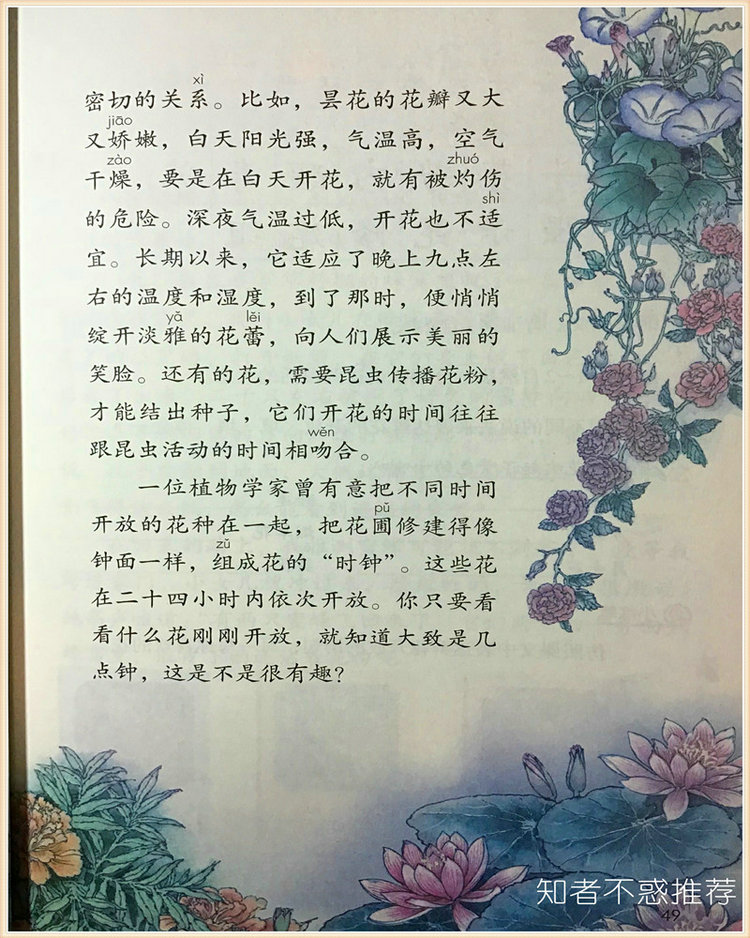 xì
密切的关系。比如，昙花的花瓣又大
jiāo
又娇嫩，白天阳光强，气温高，空气
zào zhuó
干燥，要是在白天开花，就有被灼伤
shì
的危险。深夜气温过低，开花也不适
宜。长期以来，它适应了晚上九点左
右的温度和湿度，到了那时，便悄悄
yǎ lěi
绽开淡雅的花蕾，向人们展示美丽的
笑脸。还有的花，需要昆虫传播花粉，
才能结出种子，它们开花的时间往往
wěn
跟昆虫活动的时间相吻合。
一位植物学家曾有意把不同时间
pǔ
开放的花种在一起，把花圃修建得像
zǔ
钟面一样，组成花的“时钟”。这些花
在二十四小时内依次开放。你只要看
看什么花刚刚开放，就知道大致是几
点钟，这是不是很有趣？
知者不惑推荐
49